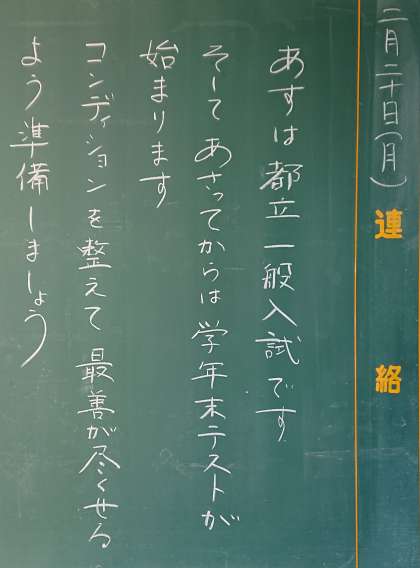 二月二十日(月)
連絡
あすは都立一般入試です
そして あさってからは学年末テストが
始まります
コンディションを整えて 最善が尽くせる
よう準備しましょう